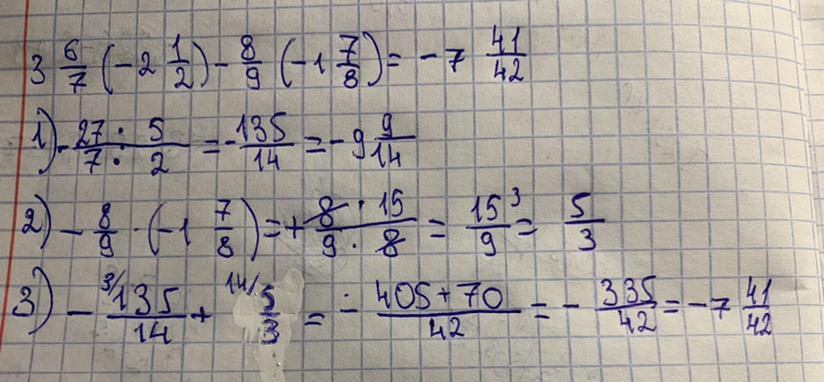 3 6/7 (-2 1/2) - 8/9 (-1 7/8) = -7 41/42
1) - 27 · 5 / 7 · 2 = - 135/14 = -9 9/14
2) - 8/9 · (-1 7/8) = + 8 · 15 / 9 · 8 = 15/9 ³ = 5/3
3) - ³/ 135/14 + ¹⁴/ 5/3 = - 405 + 70 / 42 = - 335/42 = -7 41/42